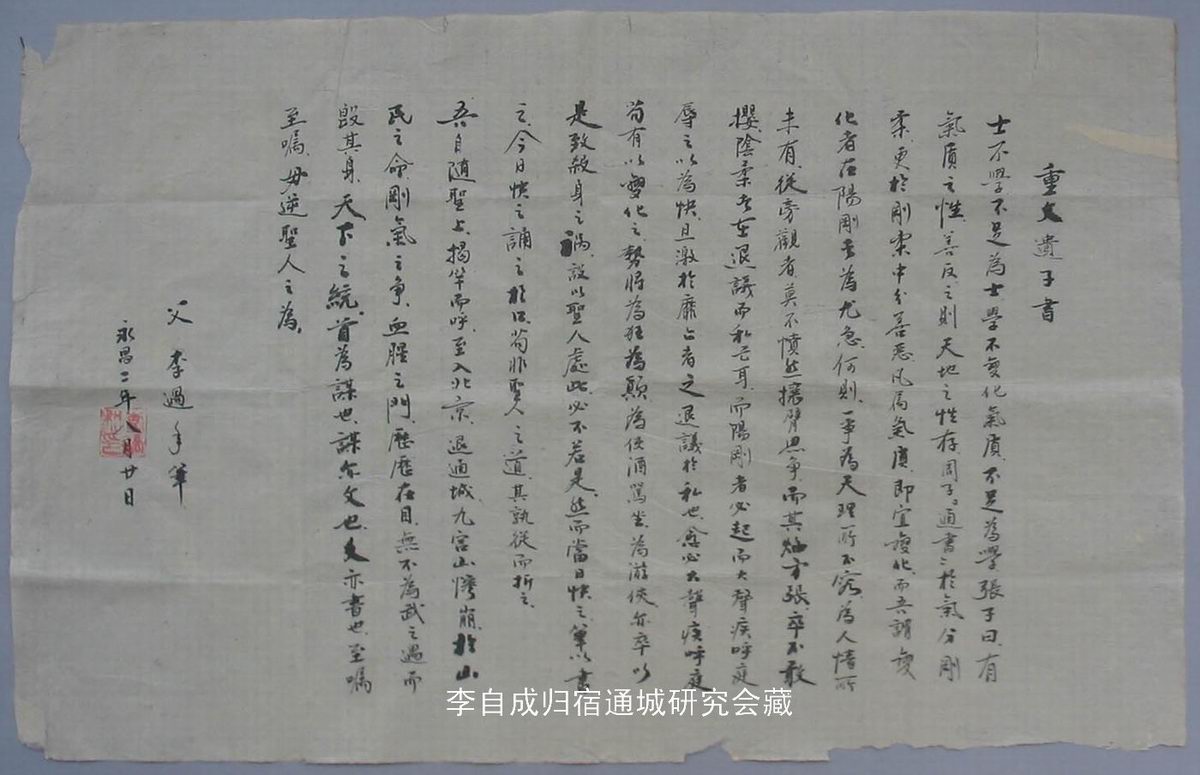 重文遺子書
士不學不足為士學不變化氣質不足為學張子曰有
氣質之性善反之則天地之性存周子通書於氣分剛
柔更於剛柔中分善惡凡屬氣質即宜變化而吾謂變
化者在陽剛者為尤急何則一事為天理所不容為人情所
未有從旁觀者莫不憤然攘臂思爭而其燄方張卒不敢
攖陰柔者在退議而私已耳而陽剛者必起而大聲疾呼庭
辱之以為快且激於靡古者之退議於私也愈必大聲疾呼庭
苟有以變化之勢將為狂為顛為使酒罵坐為游俠亦卒以
是致殺身之禍設以聖人處此必不若是然而當日快之筆以書
之今日快之誦之於口苟非聖人之道其孰從而折之
吾自隨聖上揭竿而呼至入北京退通城九宮山慘崩於山
民之命剛氣之爭血腥之門歷歷在目無不為武之過而
毀其身天下之統首為謀也謀亦文也文亦書也至囑
至囑毋逆聖人之為
父李過手筆
永昌二年八月廿日
李自成归宿通城研究会藏